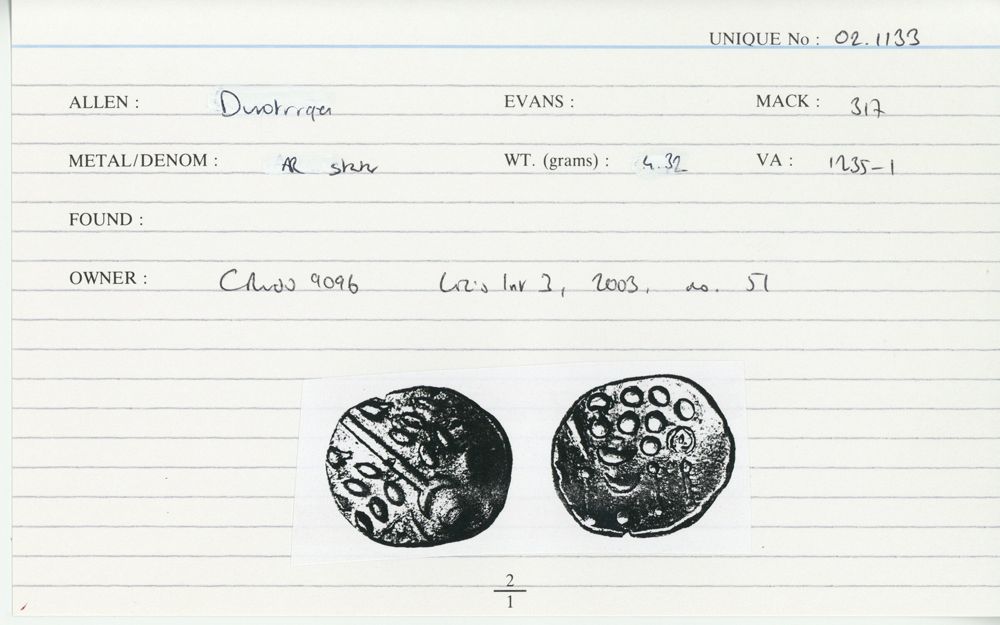 UNIQUE No : 02.1133
ALLEN : Durotriges EVANS : MACK : 317
METAL/DENOM : AR stater WT. (grams) : 4.32 VA : 1235-1
FOUND :
OWNER : 9096 List 3, 2003, no. 51
2
1